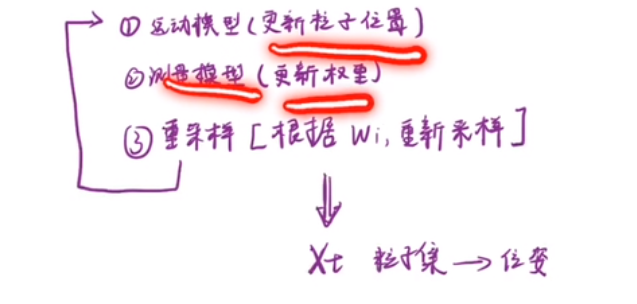 ① 运动模型(更新粒子位置)
② 测量模型(更新权重)
③ 重采样[根据 Wi, 重新采样]
Xt 粒子集 → 位姿